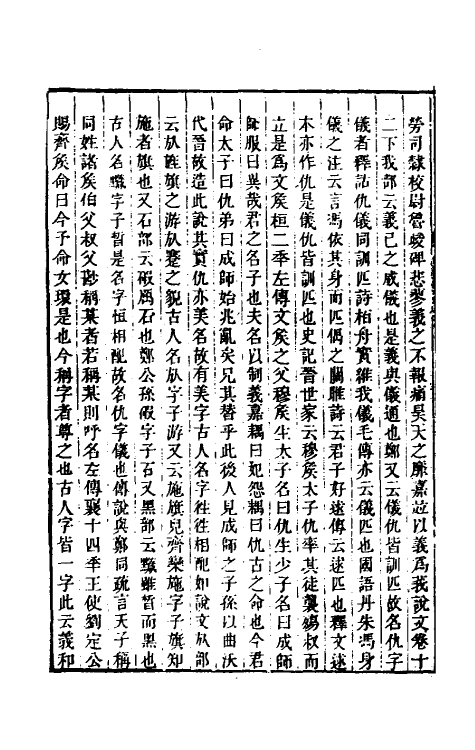 勞司隸校尉魯峻碑悲蓼義之不報痛昊天之靡嘉並以義爲莪說文卷十
二下我部云義己之威儀也是義與儀通也鄭又云儀仇皆訓匹故名仇字
儀者釋詁仇儀同訓匹詩柏舟實維我儀毛傳亦云儀匹也國語丹朱馮身
儀之注云言馮依其身而匹偶之關雎詩云君子好逑傳云逑匹也釋文逑
本亦作仇是儀仇皆訓匹也史記晉世家云穆矦太子仇率其徒襲殤叔而
立是爲文矦桓二季左傳文矦之父穆矦生太子名曰仇生少子名曰成師
師服曰異哉君之名子也夫名以制義嘉耦曰妃怨耦曰仇古之命也今君
命太子曰仇弟曰成師始兆亂矣兄其替乎此後人見成師之子孫以曲沃
代晉故造此說其實仇亦美名故有美字古人名字往往相配如說文㫃部
云㫃旌旗之游㫃蹇之貌古人名㫃字子游又云施旗皃齊欒施字子旗知
施者旗也又石部云碬厲石也鄭公孫碬字子石又黑部云黵雖晳而黑也
古人名黵字子晳是名字恒相配故名仇字儀也傳說與鄭同疏言天子稱
同姓諸矦伯父叔父尠稱某者若稱某則呼名左傳襄十四季王使劉定公
賜齊矦命曰今予命女環是也今稱字者尊之也古人字皆一字此云義和